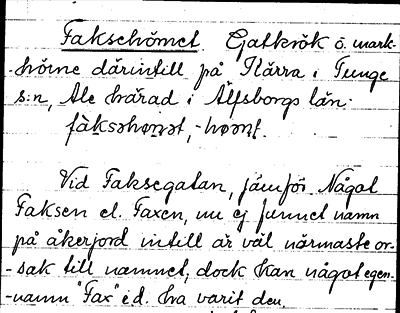 Faksehörnet. Gatkrök o. mark-
-hörne därintill på Kärra i Tunge
s:n, Ale härad i Älfsborgs län.
fàksəhɵnət, -hɵnt.
Vid Faksegatan, jämför. Något
Faksen el. Faxen, nu ej funnet namn
på åkerjord intill är väl närmaste or-
-sak till namnet, dock kan något egen-
-namn "Fax" e.d. ha varit den.